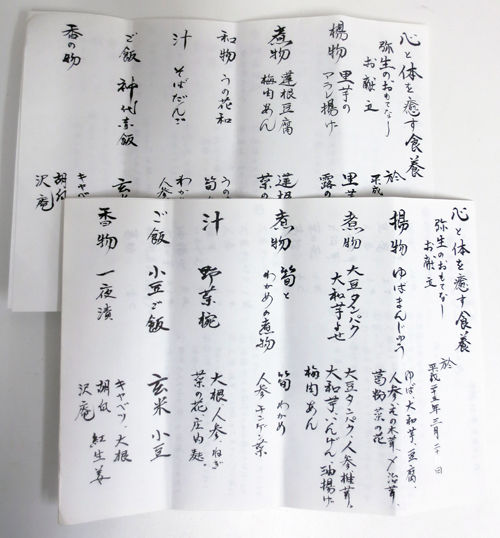 心と体を癒す食養
弥生のおもてなし
お献立
揚物 里芋の
アラレ揚げ
煮物 蓮根豆腐
梅肉あん
和物 うの花和
汁 そばだんご
ご飯 神代赤飯
香の物
於
平成
里芋
露の
蓮根
菜の
うの
筍
わか
人参
玄
キャベ
胡瓜
沢庵
心と体を癒す食養
弥生のおもてなし
お献立
於
平成二十五年三月二十日
揚物 ゆばまんじゅう
ゆば 大和芋、豆腐、
人参 木の木茸、
葛物 菜の花
煮物 大豆タンパク
大和芋よせ
大豆タンパク、人参椎茸、
大和芋、いんげん 油揚げ
梅肉あん
煮物 筍と
わかめの煮物
筍 わかめ
人参 チンゲン菜
汁 野菜椀
大根、人参 ねぎ
菜の花、庄内麩。
ご飯 小豆ご飯
玄米 小豆
香物 一夜漬
キャベツ、大根
胡瓜 紅生姜
沢庵